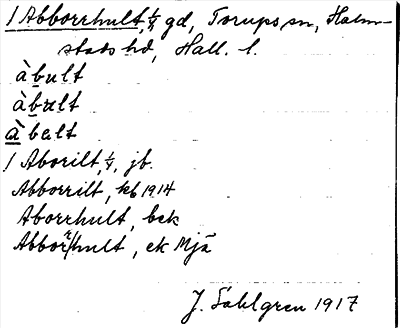 1 Abborrhult, 1/4 gd, Torups sn, Halm-
stads hd, Hall. l.
àbult
àbult
àbelt
1 Aborilt, 1/4, jb.
Abborrilt, kb 1914
Aborrhult, bek
Abborrhult, ek Mjä
J. Sahlgren 1917